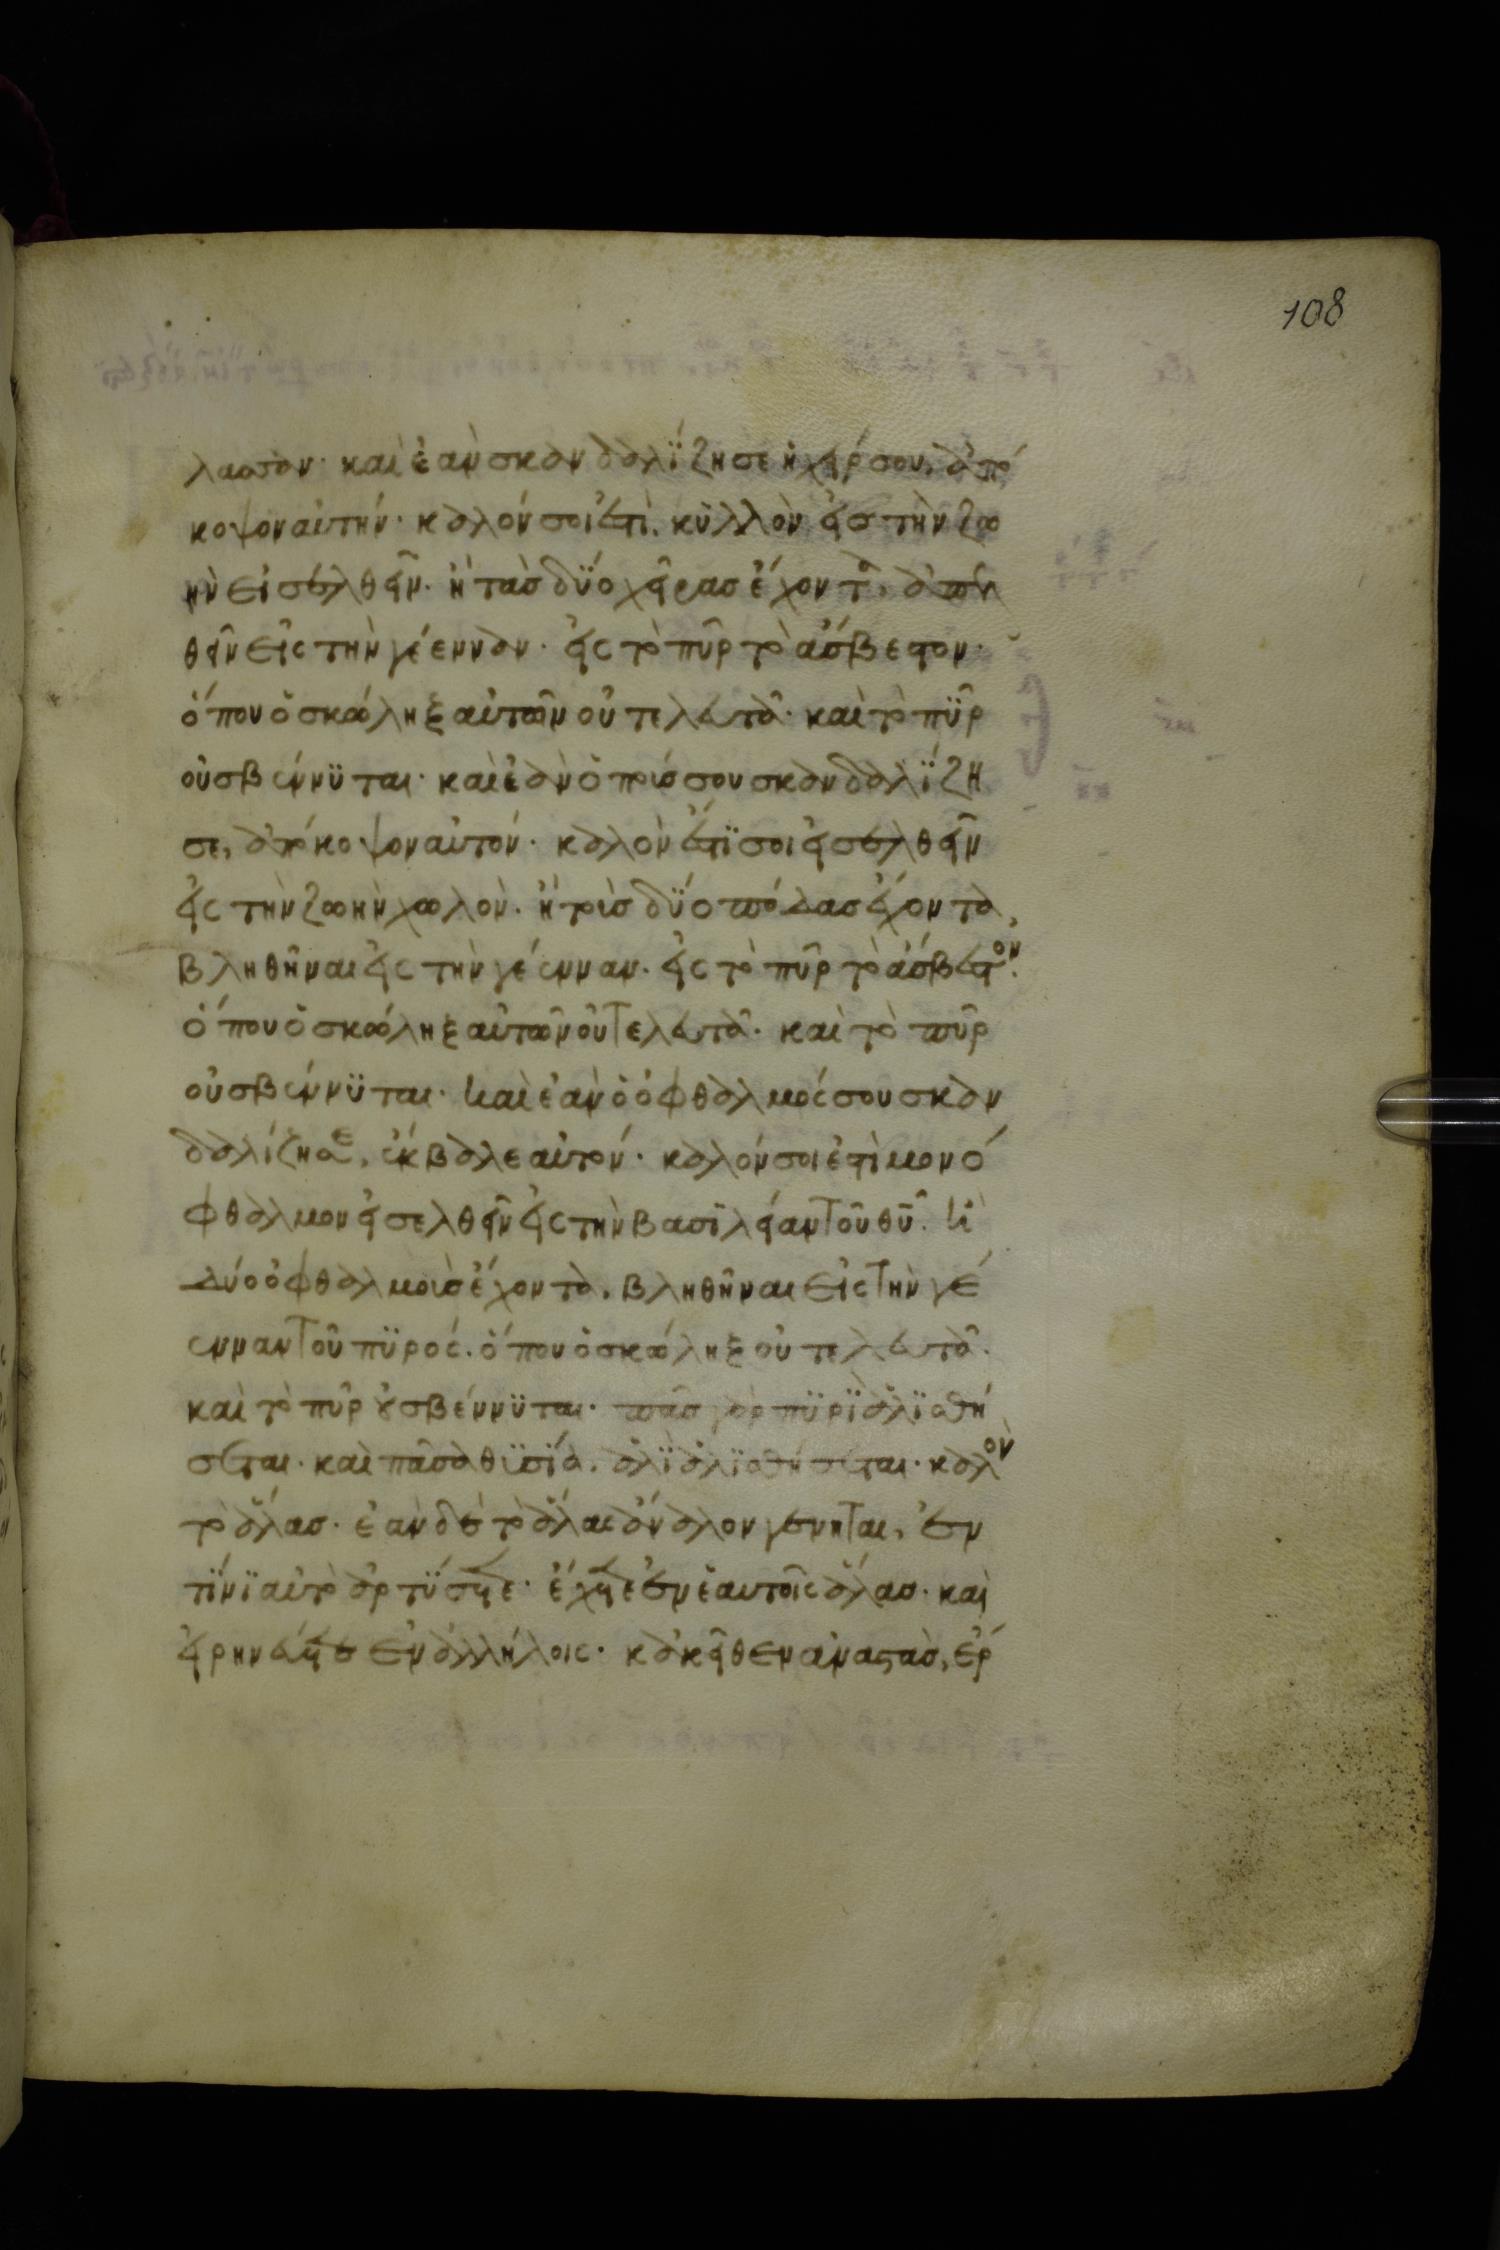 108
λασσαν· καὶ ἐὰν σκανδαλΐζη σε ἡ χείρ σου, ἀπό
κοψον αὐτήν· καλόν σοι ἐστὶ, κϋλλὸν εἰς τὴν ζω
ὴν εἰσελθεῖν· ἢ τὰς δΰο χεῖρας ἔχοντα, ἀπελ
θεῖν εἰς τὴν γέενναν· εἰς τὸ πῦρ τὸ ἄσβεστον·
ὅπου ὁ σκώληξ αὐτῶν οὐ τελευτᾶ· καὶ τὸ πῦρ
οὐ σβέννϋται· καὶ ἐὰν ὁ πούς σου σκανδαλΐζη
σε, ἀπόκοψον αὐτόν· καλὸν ἐστΐ σοι εἰσελθεῖν
εἰς τὴν ζωὴν χωλὸν· ἢ τοὺς δΰο πόδας ἔχοντα,
βληθῆναι εἰς τὴν γέενναν· εἰς τὸ πῦρ τὸ ἄσβεστον·
ὅπου ὁ σκώληξ αὐτῶν οὐ τελευτᾶ· καὶ τὸ πῦρ
οὐ σβέννϋται· καὶ ἐὰν ὁ ὀφθαλμός σου σκαν
δαλίζη σε, ἔκβαλε αὐτόν· καλόν σοι ἐστὶ μονό
φθαλμον εἰσελθεῖν εἰς τὴν βασϊλείαν τοῦ θυ̅· ἢ
δύο ὀφθαλμοὺς ἔχοντα, βληθῆναι εἰς τὴν γέ
ενναν τοῦ πϋρός· ὅπου ὁ σκώληξ οὐ τελευτᾶ·
καὶ τὸ πῦρ οὐ σβέννϋται· πᾶς γὰρ πϋρῒ ἁλϊσθή
σεται· καὶ πᾶσα θϋσΐα, ἁλῒ ἁλϊσθήσεται· καλὸν
τὸ ἅλας· ἐὰν δὲ τὸ ἅλας ἄναλον γένηται, ἐν
τΐνϊ αὐτὸ ἀρτΰσετε· ἔχετε ἐν ἑαυτοῖς ἅλας· καὶ
εἰρηνεύετε ἐν ἀλλήλοις· κἀκεῖθεν ἀναστὰς, ἔρ